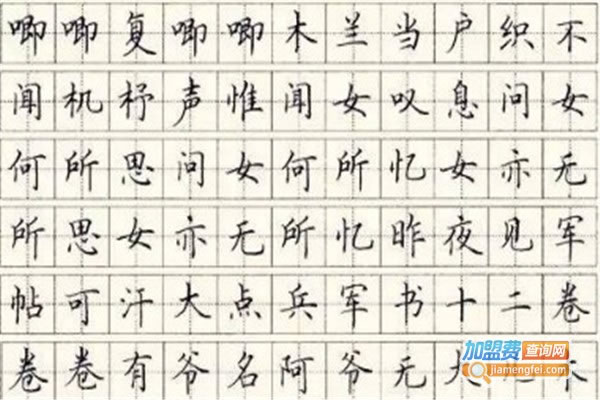 唧唧复唧唧木兰当户织不
闻机杼声惟闻女叹息问女
何所思问女何所忆女亦无
所思女亦无所忆昨夜见军
帖可汗大点兵军书十二卷
卷卷有爷名阿爷无大
加盟费查询网
jiamengfei.com